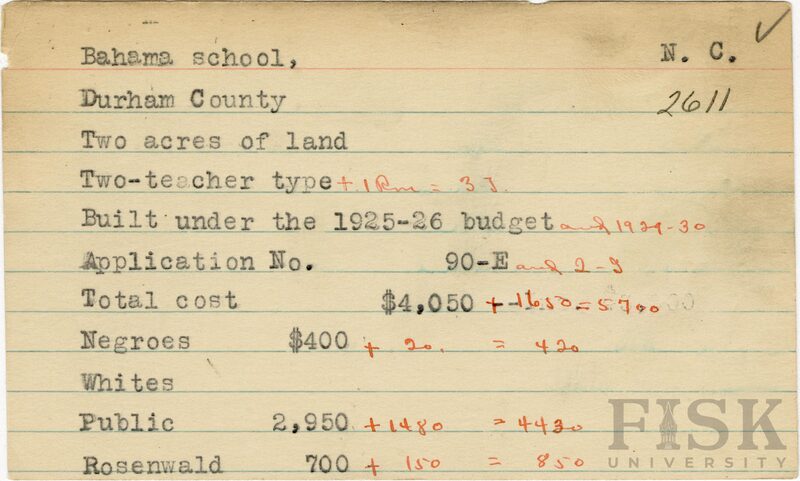 Bahama school, N. C.
Durham County 2611
Two acres of land
Two-teacher type + 1 Rm = 3 T.
Built under the 1925-26 budget and 1929-30
Application No. 90-E and 2-I
Total cost $4,050 + 1650 = 5700
Negroes $400 + 20. = 420
Whites
Public 2,950 + 1480 = 4430
Rosenwald 700 + 150 = 850
FISK
UNIVERSITY